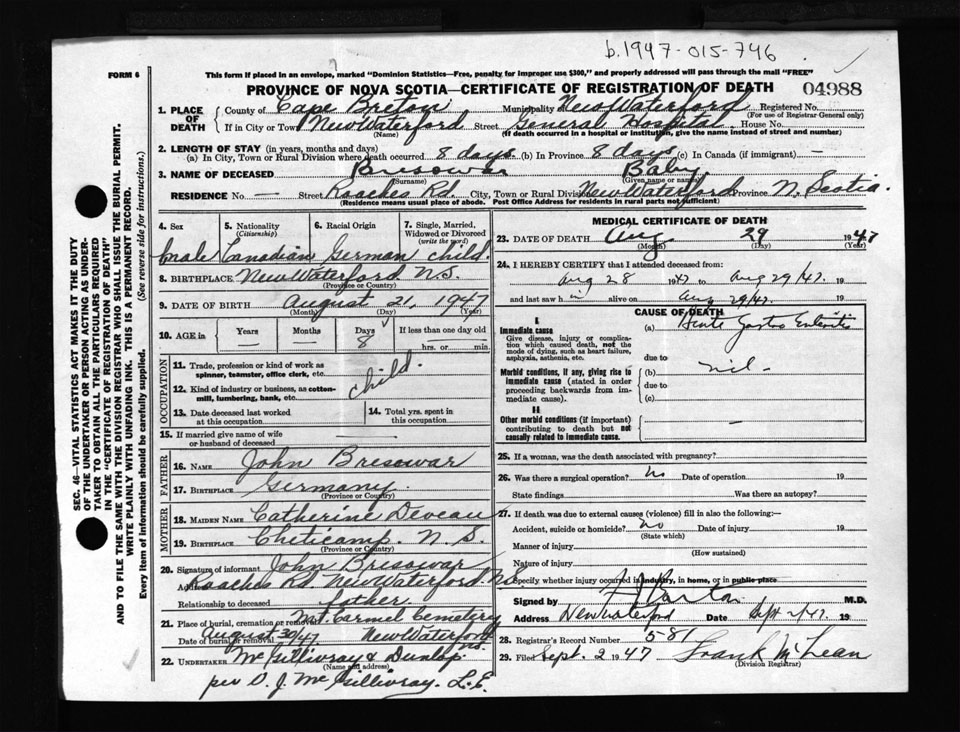 b.1947-015-746
FORM 6
This form if placed in an envelope, marked "Dominion Statistics—Free, penalty for improper use $300," and properly addressed will pass through the mail "FREE"
PROVINCE OF NOVA SCOTIA—CERTIFICATE OF REGISTRATION OF DEATH 04988
SEC. 46—VITAL STATISTICS ACT MAKES IT THE DUTY
OF THE UNDERTAKER OR PERSON ACTING AS UNDER-
TAKER TO OBTAIN ALL THE PARTICULARS REQUIRED
IN THE "CERTIFICATE OF REGISTRATION OF DEATH"
AND TO FILE THE SAME WITH THE DIVISION REGISTRAR WHO SHALL ISSUE THE BURIAL PERMIT.
WRITE PLAINLY WITH UNFADING INK. THIS IS A PERMANENT RECORD.
Every item of information should be carefully supplied. (See reverse side for instructions.)
1. PLACE OF DEATH County of Cape Breton Municipality of New Waterford Registered No.
(For use of Registrar General only)
If in City or Town New Waterford Street General Hospital House No.
(Name) (If death occurred in a hospital or institution, give the name instead of street and number)
2. LENGTH OF STAY (in years, months and days)
(a) In City, Town or Rural Division where death occurred 8 days (b) In Province 8 days (c) In Canada (if immigrant) —
3. NAME OF DECEASED Bresowar Baby
(Surname) (Given name or names)
RESIDENCE No. — Street Roaches Rd City, Town or Rural Division New Waterford Province N. Scotia.
(Residence means usual place of abode. Post Office Address for residents in rural parts not sufficient)
4. Sex 5. Nationality (Citizenship) 6. Racial Origin 7. Single, Married, Widowed or Divorced (write the word)
male Canadian German child.
8. BIRTHPLACE New Waterford N.S.
(Province or Country)
9. DATE OF BIRTH August 21, 1947
(Month) (Day) (Year)
10. AGE in Years Months Days If less than one day old
8 hrs. or min.
OCCUPATION
11. Trade, profession or kind of work as
spinner, teamster, office clerk, etc.
12. Kind of industry or business, as cotton-
mill, lumbering, bank, etc.
child.
13. Date deceased last worked at this occupation 14. Total yrs. spent in this occupation
15. If married give name of wife
or husband of deceased
FATHER
16. NAME John Bresowar
17. BIRTHPLACE Germany.
(Province or Country)
MOTHER
18. MAIDEN NAME Catherine Deveau
19. BIRTHPLACE Cheticamp. N. S.
(Province or Country)
20. Signature of informant John Bresowar
Address Roaches Rd New Waterford N.S.
Relationship to deceased father.
21. Place of burial, cremation or removal Mt. Carmel Cemetery
Date of burial or removal August 30/47 New Waterford N.S.
22. UNDERTAKER McGillivray & Dunlop.
(Name and address)
per D. J. McGillivray. L.E.
MEDICAL CERTIFICATE OF DEATH
23. DATE OF DEATH Aug 29 1947
(Month) (Day) (Year)
24. I HEREBY CERTIFY that I attended deceased from:
Aug 28 1947 Aug 29/47.
and last saw h im alive on Aug 29/47. 19
CAUSE OF DEATH
I.
Immediate cause
Give disease, injury or complica-
tion which caused death, not the
mode of dying, such as heart failure,
asphyxia, asthenia, etc.
(a) Acute Gastro Enteritis
due to
Morbid conditions, if any, giving rise to
immediate cause (stated in order
proceeding backwards from im-
mediate cause).
(b) nil -
due to
(c)
II
Other morbid conditions (if important)
contributing to death but not
causally related to immediate cause.
—
25. If a woman, was the death associated with pregnancy?
26. Was there a surgical operation? No Date of operation 19
State findings Was there an autopsy?
27. If death was due to external causes (violence) fill in also the following:—
Accident, suicide or homicide? No Date of injury 19
(State which)
Manner of injury
(How sustained)
Nature of injury
Specify whether injury occurred in industry, in home, or in public place
Signed by M.D.
Address New Waterford Date Sept 2/47. 19
28. Registrar's Record Number 581
29. Filed Sept. 2 1947 Frank McLean
(Division Registrar)